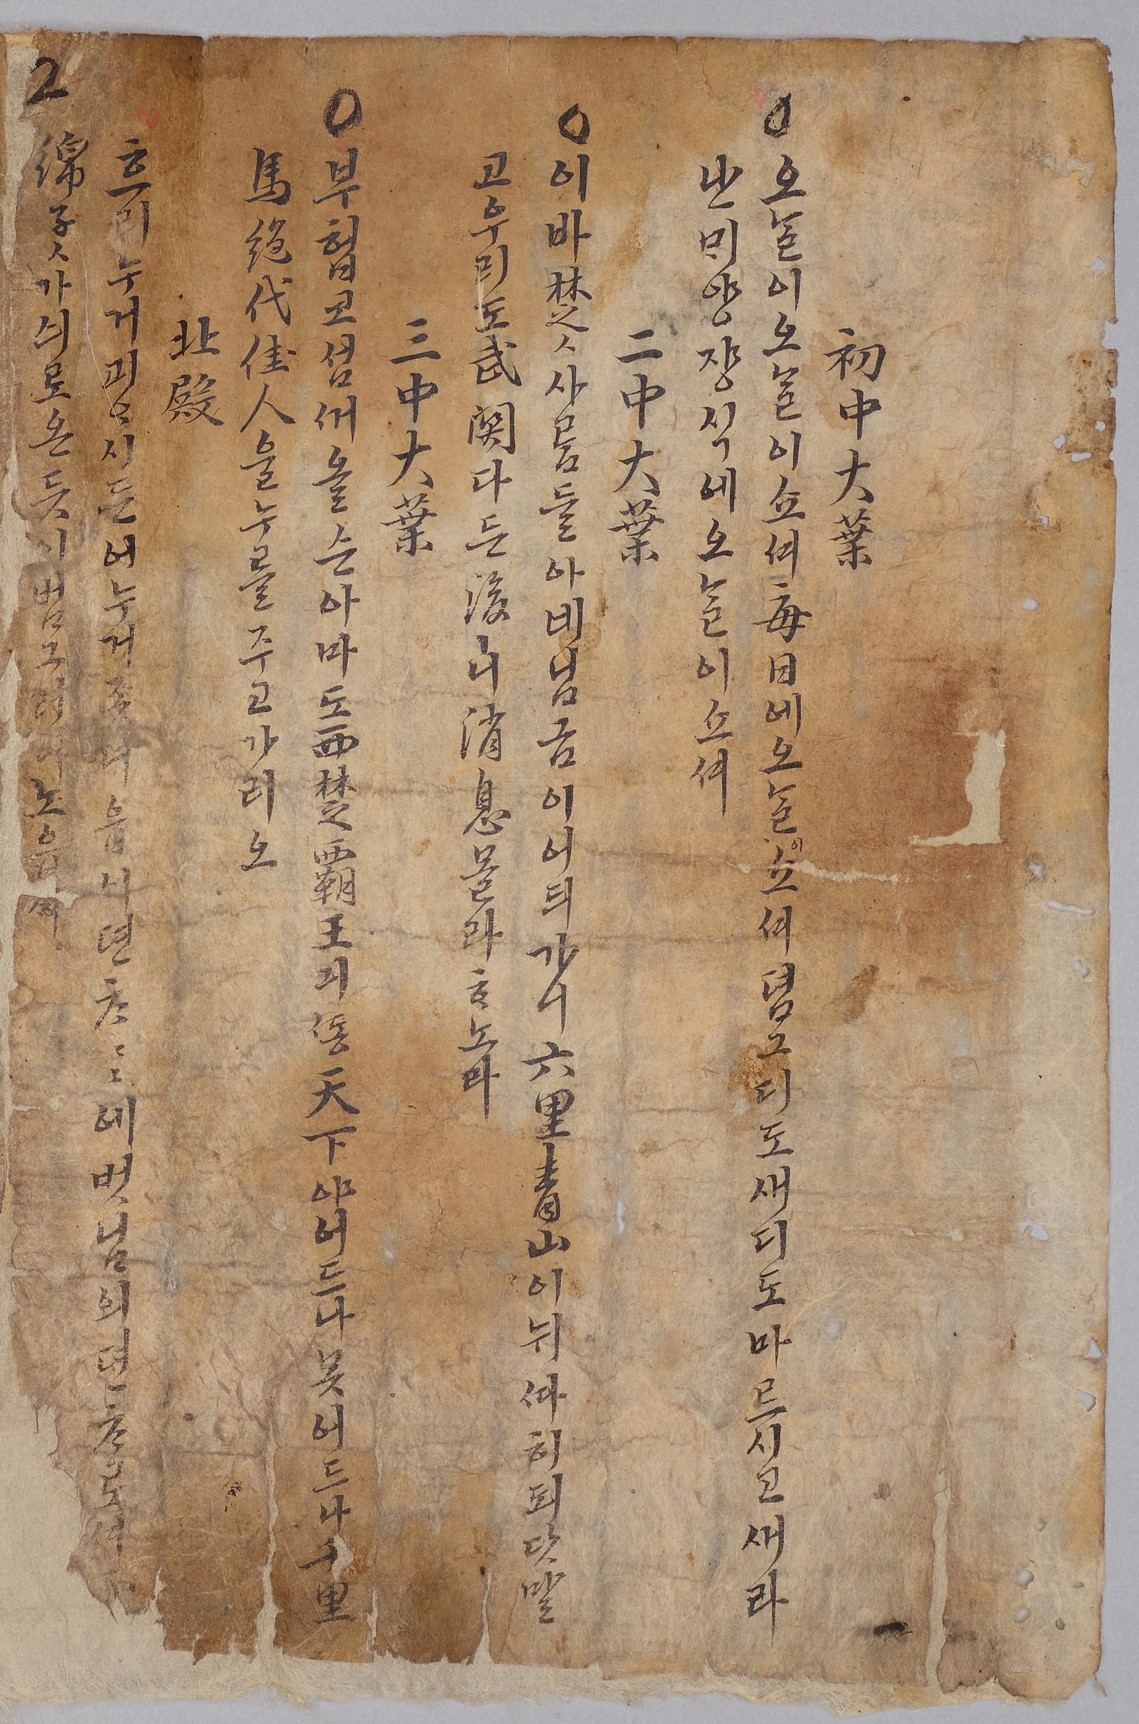 2
初中大葉
오ᄂᆞᆯ이오ᄂᆞᆯ이쇼셔每日에오ᄂᆞᆯ이쇼셔뎜그디도새디도마르시고새라
난ᄆᆡ양쟝식에오ᄂᆞᆯ이쇼셔
二中大葉
이바楚ㅅ사ᄅᆞᆷ들아네님금이어듸가니六里靑山이뉘ᄯᅡ히되닷말
고우리도武關다든後ㅣ니消息몰라ᄒᆞ노라
三中大葉
부헙코섬ᄭᅥ올슨아마도西楚覇王긔ᄯᅩᆼ天下야어드나못어드나千里
馬絶代佳人을누를주고가리오
北殿
흐리누거괴ᄋᆞᆸ시든어누거좃니ᄋᆞᆸ시뎐ᄎᆞ뎐ᄎᆞ에벗님의뎐ᄎᆞ로셔
綿子ㅅ가싀로온ᄃᆞᆺ시범그려 노읍